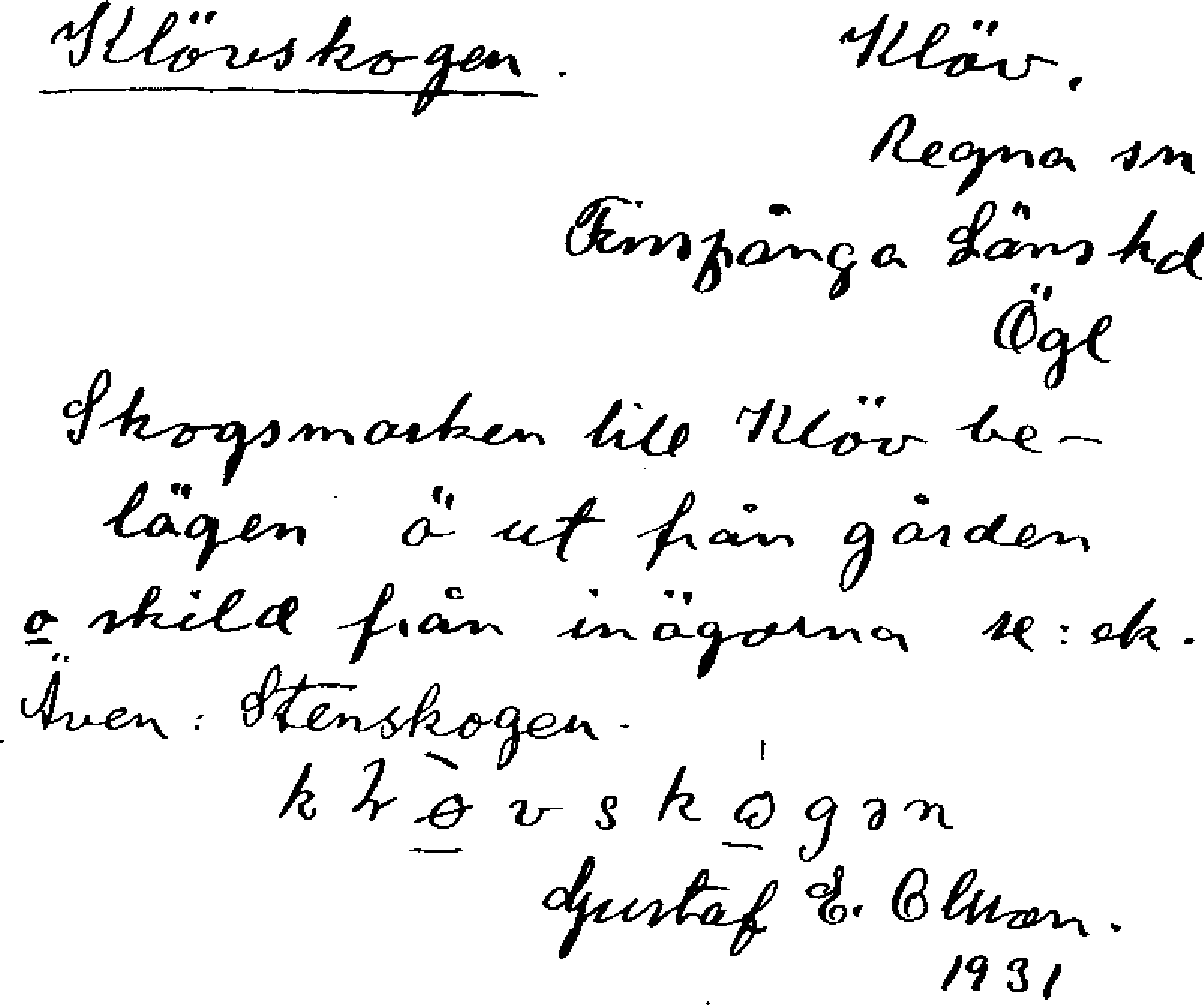 Klövskogen. Klöv.
Regna sn
Finspånga Läns hd
Ögl
Skogsmarken till Klöv be-
lägen ö ut från gården
o skild från inägorna se: ek.
Även: Stenskogen.
Gustaf E. Olsson.
1931